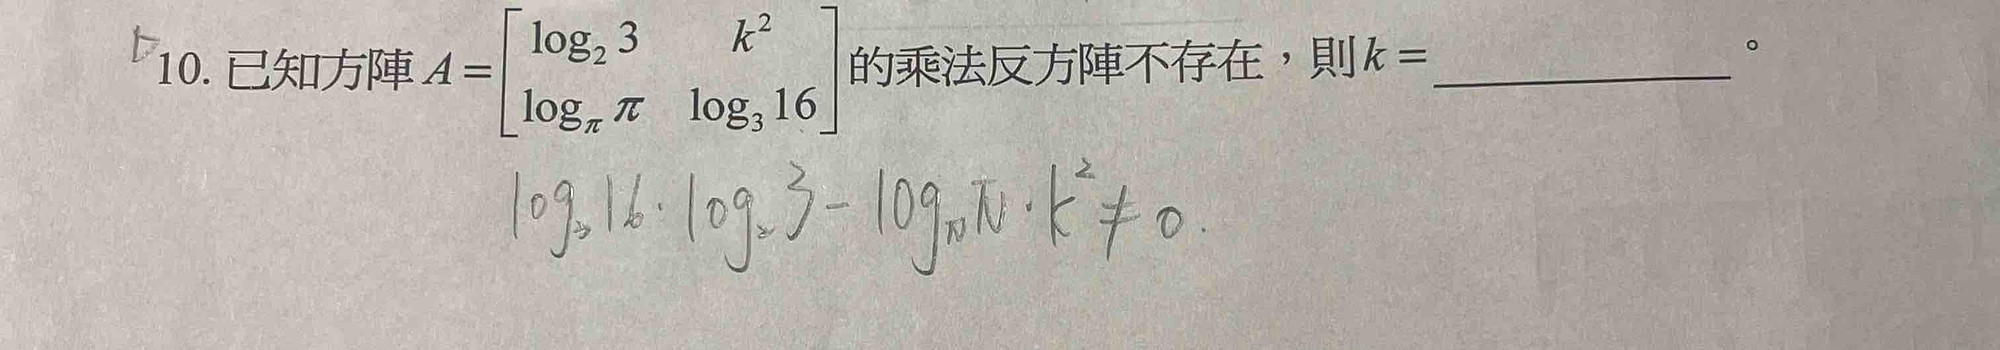 10. 已知方陣 A = [ log₂ 3  k² ; log_π π  log₃ 16 ] 的乘法反方陣不存在，則 k = ＿＿＿＿＿＿。
log₃ 16 · log₂ 3 − log_π π · k² ≠ 0.